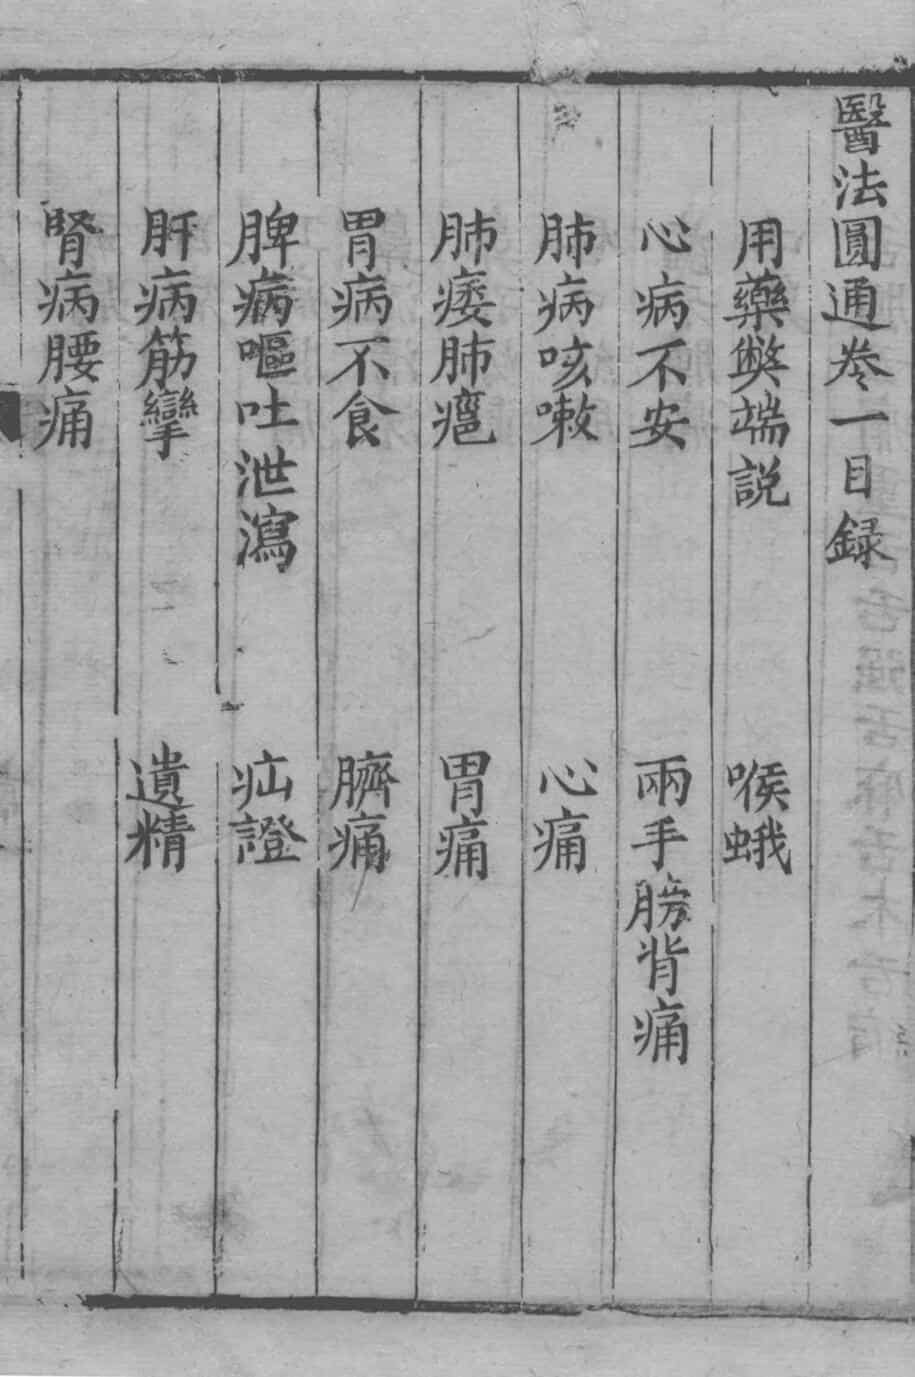 醫法圓通卷一目録
用藥弊端説　喉蛾
心病不安　兩手膀背痛
肺病咳嗽　心痛
肺痿肺癰　胃痛
胃病不食　臍痛
脾病嘔吐泄瀉　疝證
肝病筋攣　遺精
腎病腰痛